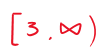 [3,∞)